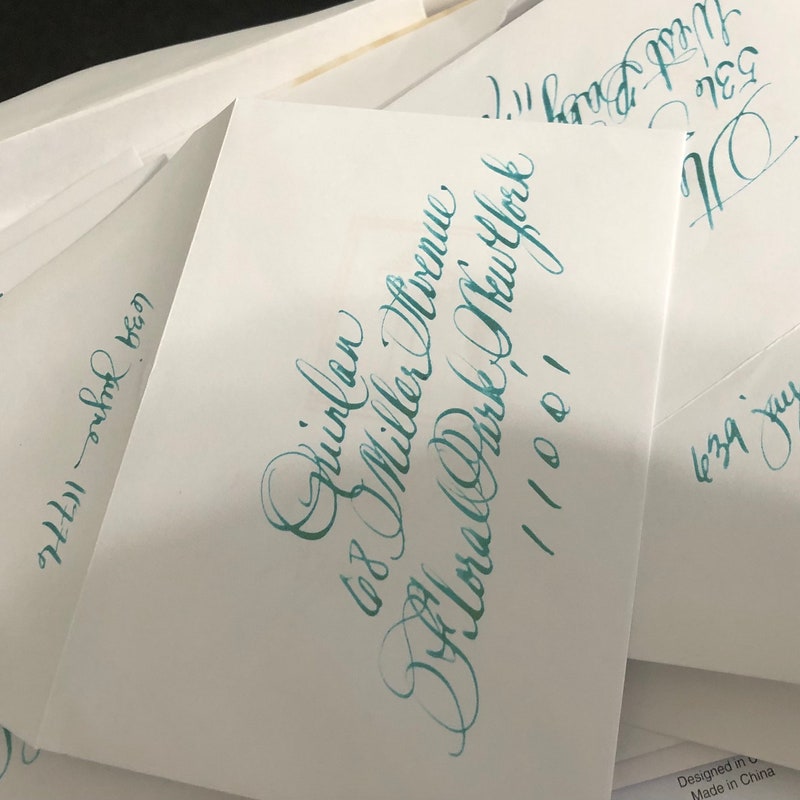 Quinlan
68 Miller Avenue
Floral Park, New York
11001
639 Jayne 11776
536
West Baby
639
Designed in
Made in China